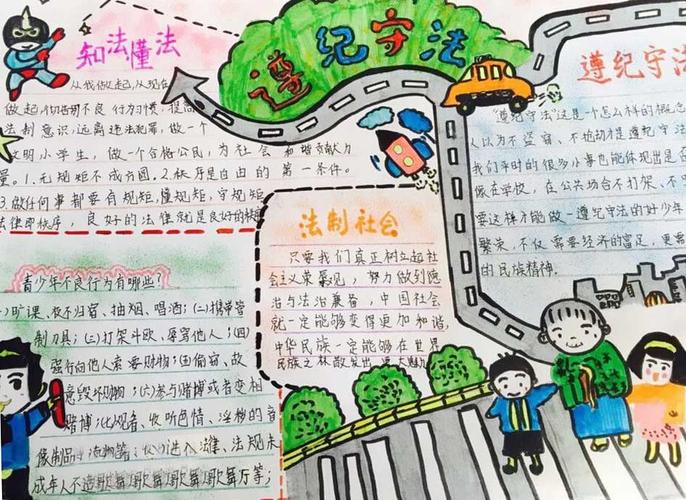 遵纪守法
知法懂法
从我做起,从现在
做起,彻底明不良行为习惯,提高
法制意识,远离违法犯罪,做一个
文明小学生,做一个合格公民,为社会和谐贡献力
量。1.无规矩不成方圆,2.秩序是自由的第一条件。
3.做任何事都要有规矩,懂规矩,守规矩
法律即秩序,良好的法律就是良好的秩
青少年不良行为有哪些?
(一)旷课、夜不归宿、抽烟、喝酒;(二)携带管
制刀具;(三)打架斗殴、辱骂他人;(四)
强行向他人索要财物;(五)偷窃、故
意毁坏财物;(六)参与赌博或者变相
赌博;(七)观看、收听色情、淫秽的音
像制品、读物等;(八)进入法律、法规未
成年人不适歌舞歌舞歌舞歌舞厅等;
法制社会
只要我们真正树立起社
会主义荣辱观,努力做到德
治与法治兼备,中国社会
就一定能够变得更加和谐,
中华民族一定能够在世界
民族之林散发出更大魅力
遵纪守法
“遵纪守法”这是一个怎么样的概念
人以为不盗窃、不抢劫才是遵纪守法
我们平时的很多小事也能体现出是否
像在学校,在公共场合不打架、不
要这样才能做一遵纪守法的好少年
繁荣,不仅需要经济的富足,更需
的民族精神.